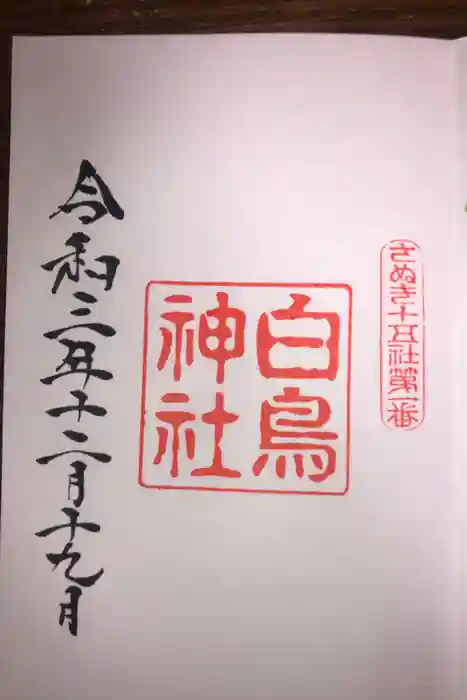 さぬき十五社第一番
白鳥
神社
令和三年十二月十九月